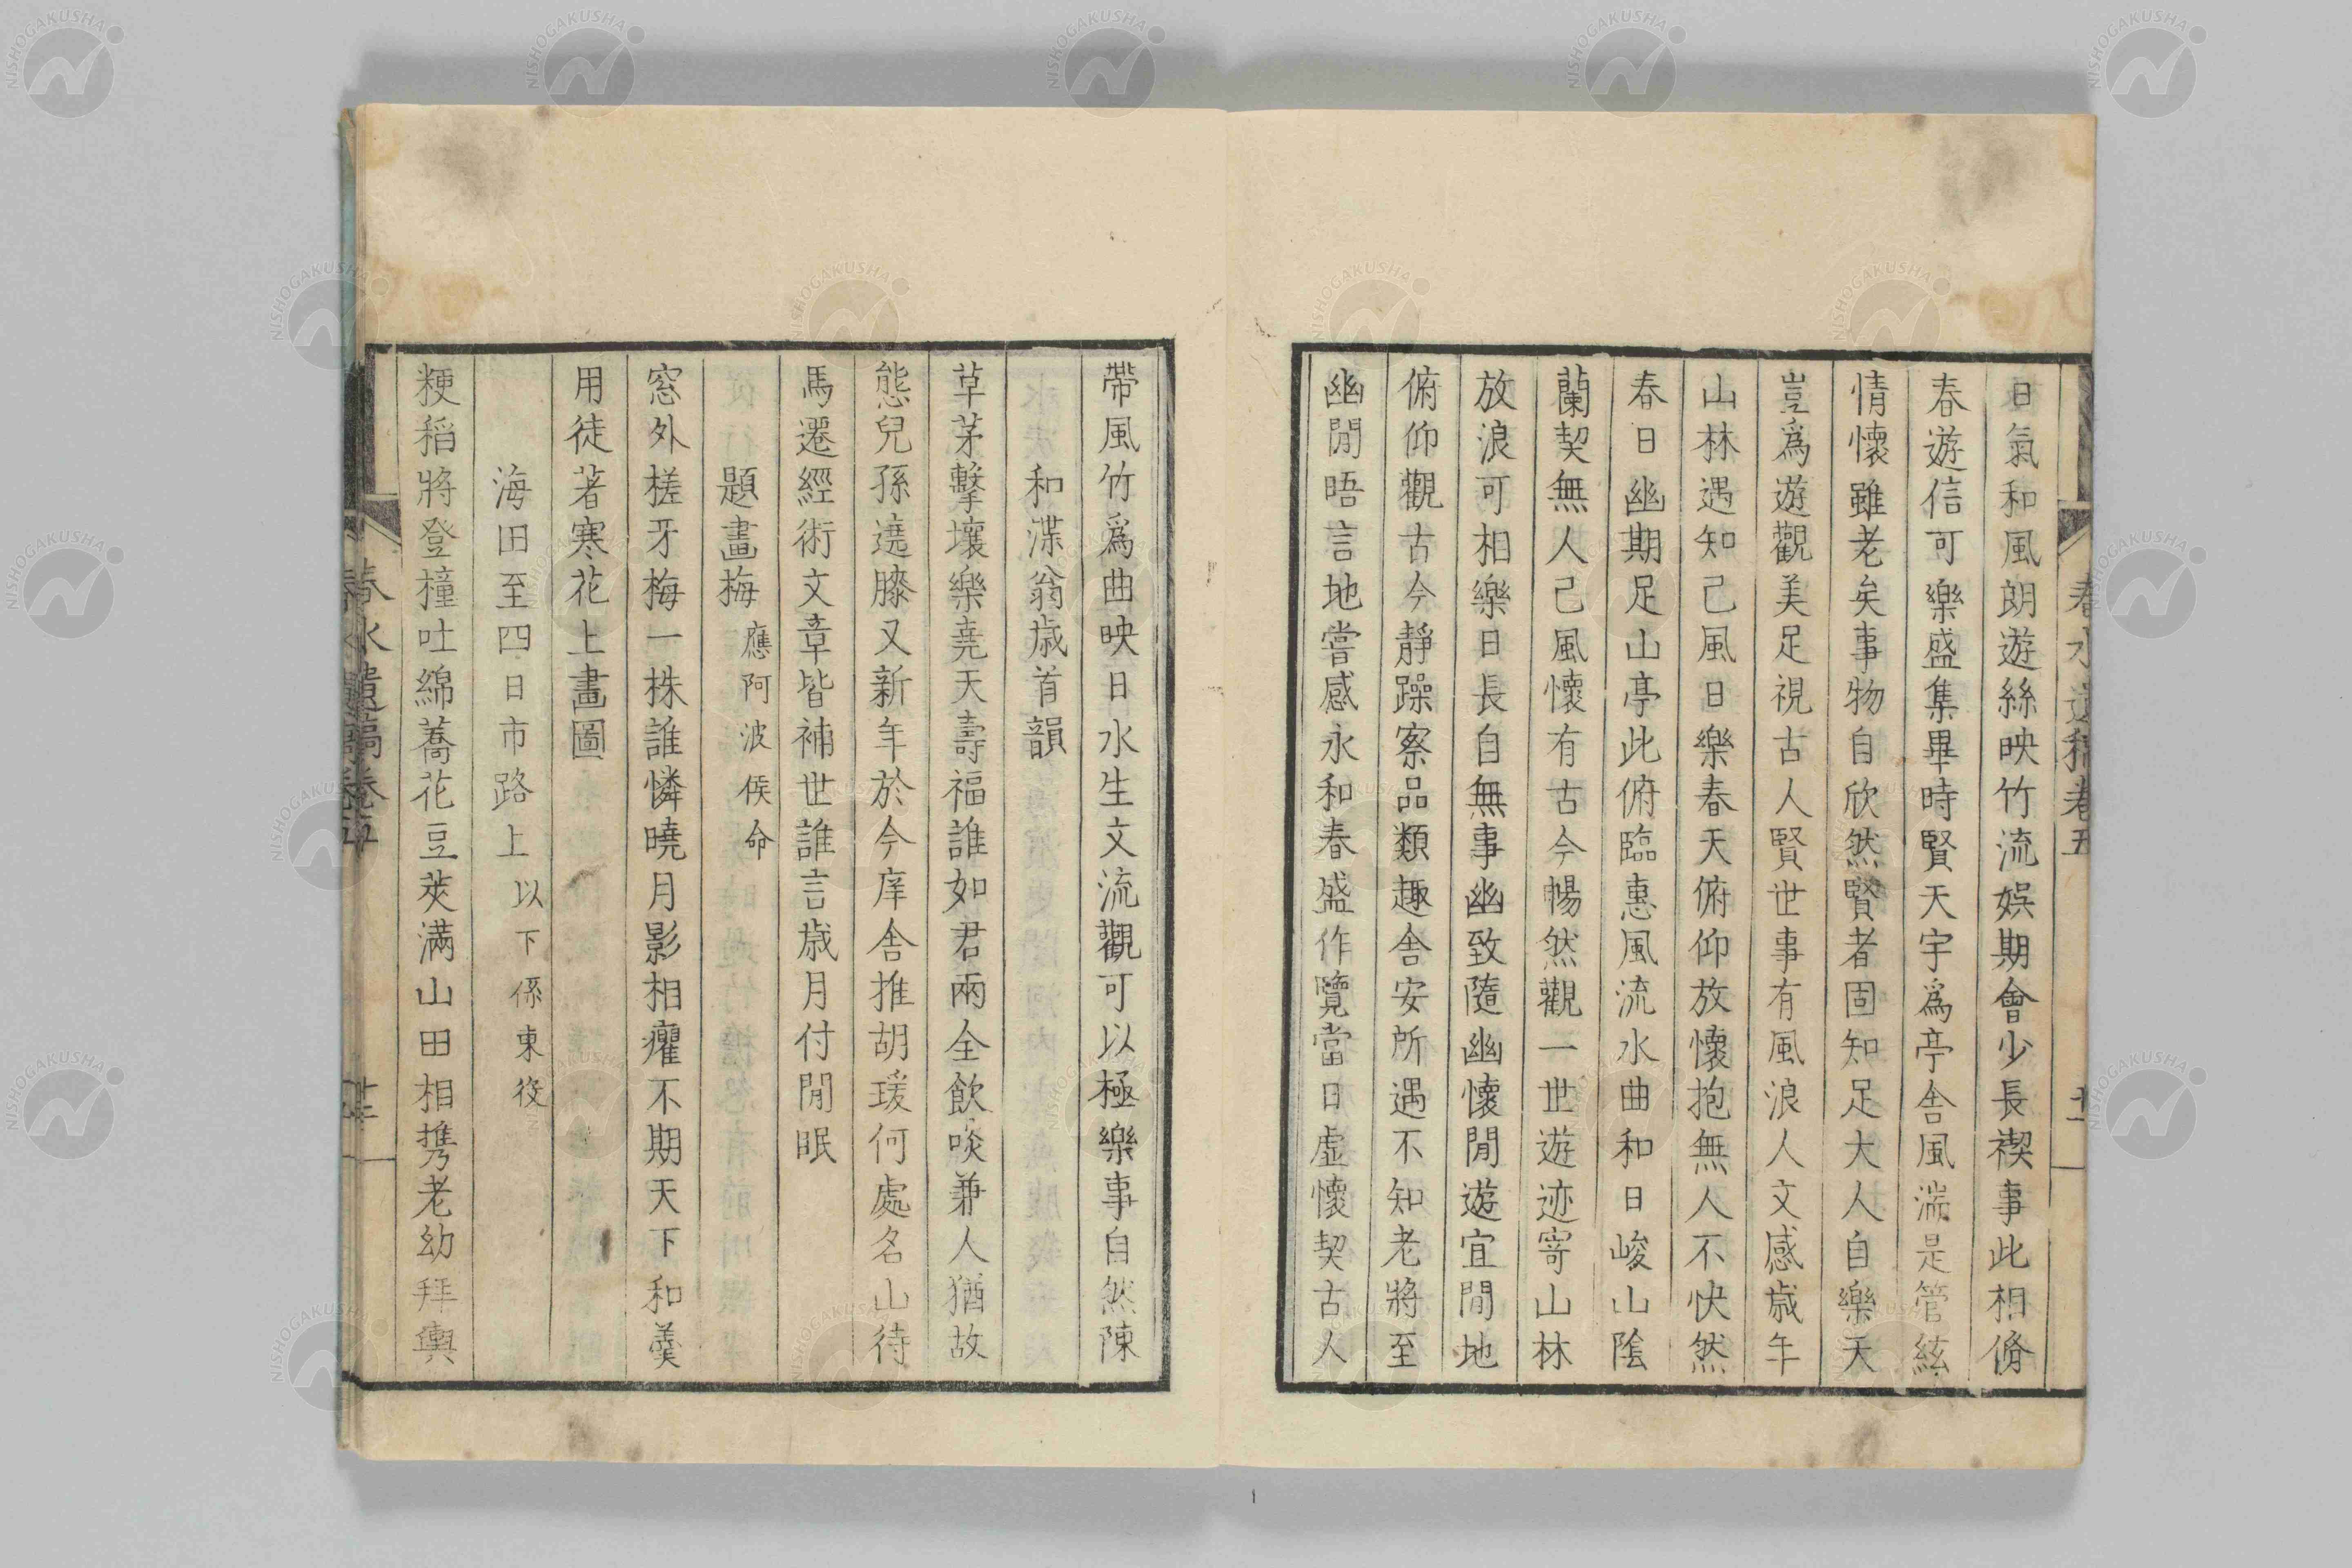 日氣和風朗遊絲映竹流娯期會少長禊事此相脩
春遊信可樂盛集畢時賢天宇爲亭舍風湍是管絃
情懷雖老矣事物自欣然賢者固知足大人自樂天
豈爲遊觀美足視古人賢世事有風浪人文感歳年
山林遇知己風日樂春天俯仰放懷抱無人不快然
春日幽期足山亭此俯臨惠風流水曲和日峻山陰
蘭契無人己風懷有古今暢然觀一世遊迹寄山林
放浪可相樂日長自無事幽致隨幽懷閒遊宜閒地
俯仰觀古今靜躁察品類趣舍安所遇不知老將至
幽閒晤言地嘗感永和春盛作覽當日虛懷契古人
春水遺稿卷五
帶風竹爲曲映日水生文流觀可以極樂事自然陳
和渫翁歳首韻
草茅擊壤樂堯天壽福誰如君兩全飲啖兼人猶故
態兒孫遶膝又新年於今庠舍推胡瑗何處名山待
馬遷經術文章皆補世誰言歳月付閒眠
題畫梅應阿波侯命
窓外槎牙梅一株誰憐曉月影相癯不期天下和羹
用徒著寒花上畫圖
海田至四日市路上以下係東役
粳稻將登橦吐綿蕎花豆莢满山田相携老幼拜輿
春水遺稿卷五